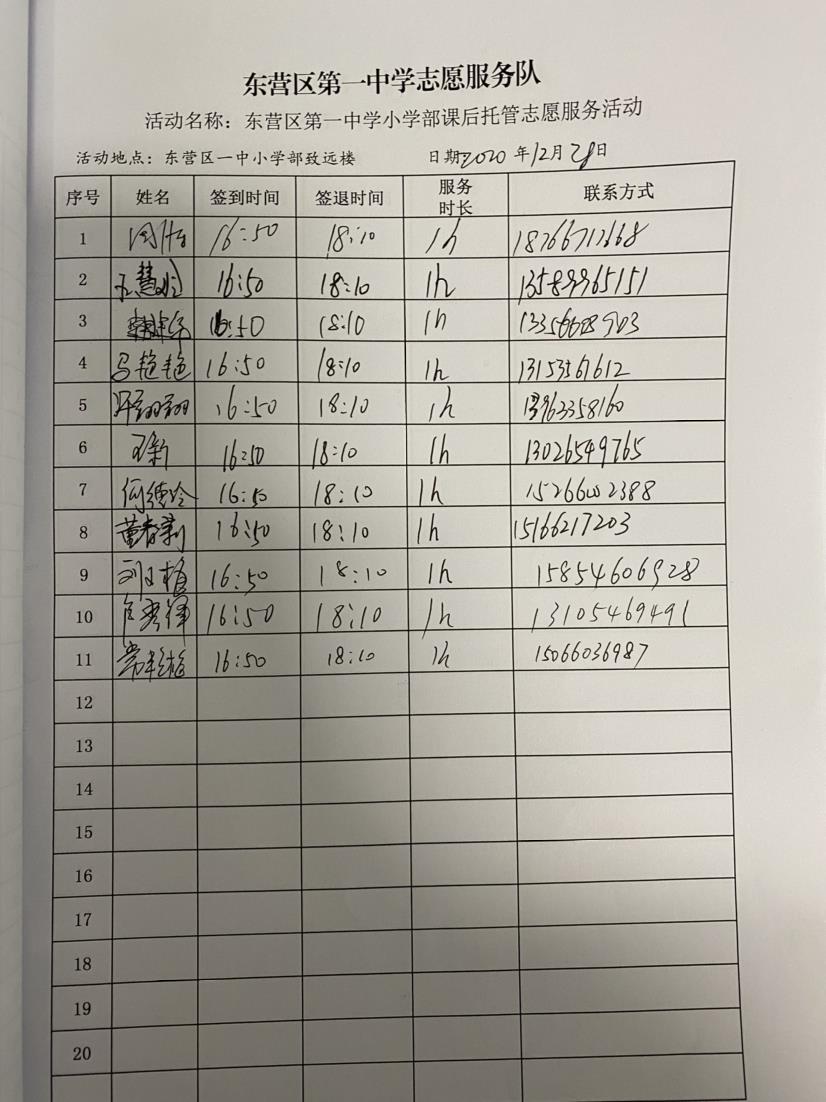 东营区第一中学志愿服务队
活动名称：东营区第一中学小学部课后托管志愿服务活动
活动地点：东营区一中小学部致远楼 日期2020年12月28日
序号 姓名 签到时间 签退时间 服务时长 联系方式
1 16:50 18:10 1h 18766713668
2 16:50 18:10 1h 13589965151
3 16:50 18:10 1h
4 马艳艳 16:50 18:10 1h 13153561612
5 16:50 18:10 1h 13963358160
6 王新 16:50 18:10 1h 13026549765
7 何绪玲 16:50 18:10 1h 15266002388
8 董春莉 16:50 18:10 1h 15166217203
9 16:50 18:10 1h 15854606928
10 16:50 18:10 1h 13105469491
11 16:50 18:10 1h 15066036987
12
13
14
15
16
17
18
19
20